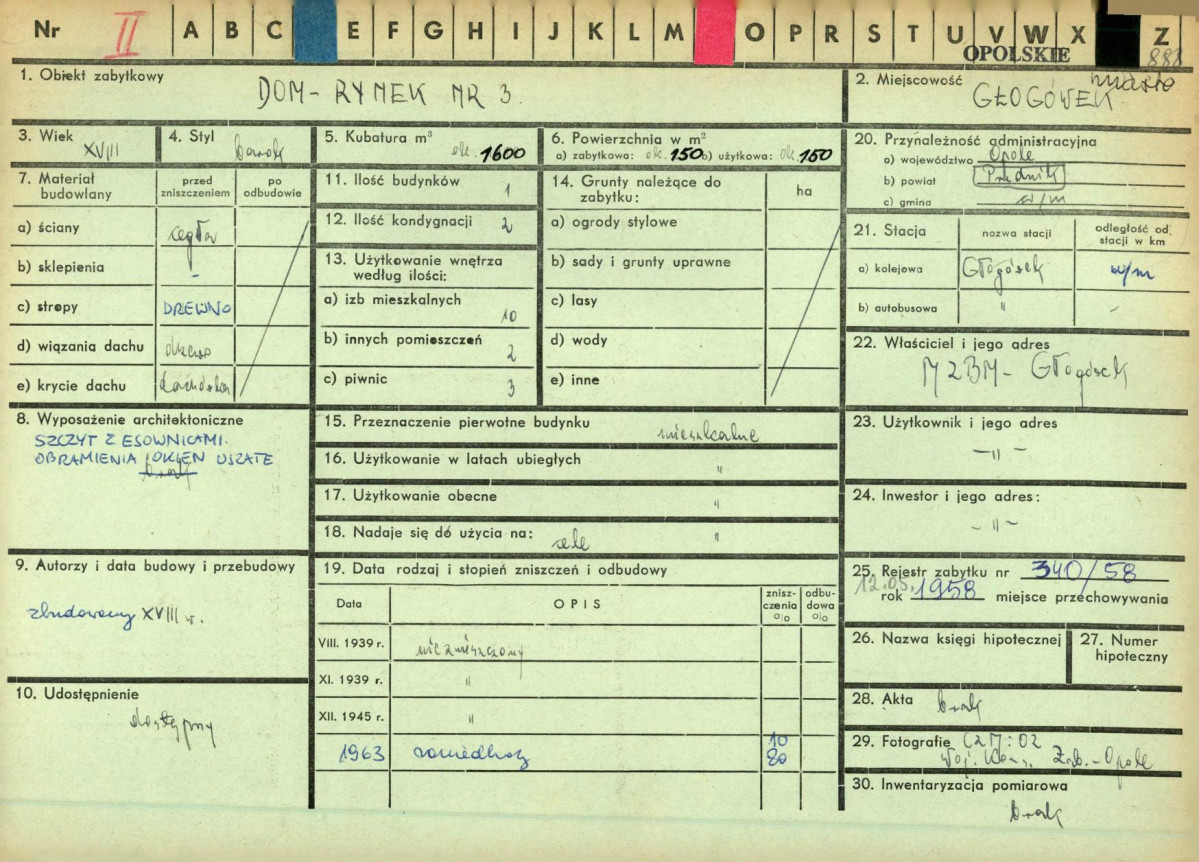 Nr II A B C E F G H I J K L M O P R S T U V W X Z
OPOLSKIE 888
1. Obiekt zabytkowy
DOM - RYNEK NR 3.
2. Miejscowość miasto
GŁOGÓWEK
3. Wiek
XVIII
4. Styl
barok
5. Kubatura m³
ok. 1600
6. Powierzchnia w m²
a) zabytkowa: ok. 150 b) użytkowa: ok 150
7. Materiał budowlany
przed zniszczeniem
po odbudowie
a) ściany cegła
b) sklepienia -
c) stropy DREWNO
d) wiązania dachu
e) krycie dachu dachówka
8. Wyposażenie architektoniczne
SZCZYT Z ESOWNICAMI.
OBRAMIENIA OKIEN USZATE
brak
9. Autorzy i data budowy i przebudowy
zbudowany XVIII w.
10. Udostępnienie
dostępny
11. Ilość budynków 1
12. Ilość kondygnacji 2
13. Użytkowanie wnętrza
według ilości:
a) izb mieszkalnych
10
b) innych pomieszczeń
2
c) piwnic 3
14. Grunty należące do
zabytku:
ha
a) ogrody stylowe
b) sady i grunty uprawne
c) lasy
d) wody
e) inne
15. Przeznaczenie pierwotne budynku
mieszkalne
16. Użytkowanie w latach ubiegłych "
17. Użytkowanie obecne "
18. Nadaje się do użycia na: cele "
19. Data rodzaj i stopień zniszczeń i odbudowy
Data
OPIS
znisz-
czenia
o|o
odbu-
dowa
o|o
VIII. 1939 r. niezniszczony
XI. 1939 r. "
XII. 1945 r. "
1963 zaniedbany 10
20
20. Przynależność administracyjna
a) województwo Opole
b) powiat Prudnik
c) gmina w/m
21. Stacja
nazwa stacji
odległość od
stacji w km
a) kolejowa Głogówek w/m
b) autobusowa " -
22. Właściciel i jego adres
MZBM - Głogówek
23. Użytkownik i jego adres
- " -
24. Inwestor i jego adres:
- " -
25. Rejestr zabytku nr 340/58
12.05.
rok 1958 miejsce przechowywania
26. Nazwa księgi hipotecznej
27. Numer
hipoteczny
28. Akta brak
29. Fotografie
Woj. Kons. Zab. - Opole
30. Inwentaryzacja pomiarowa
brak